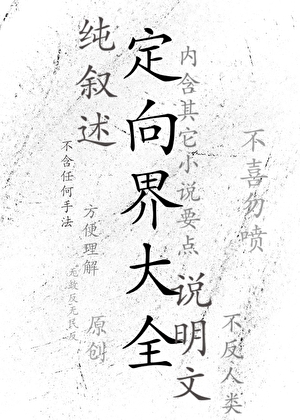 纯叙述
定向界大全
内含其它小说要点
不喜勿喷
不含任何手法
方便理解
原创
说明文
不反人类